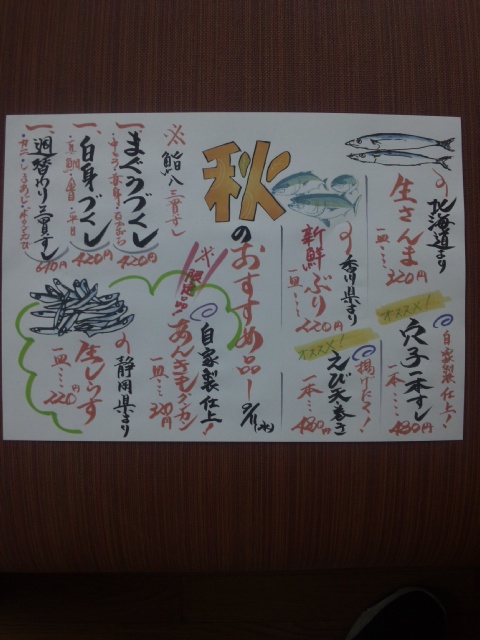 北海道より
生さんま
一皿…320円
自家製仕上!
オススメ!
穴子一本すし
一本…480円
香川県より
新鮮ぶり
一皿…220円
揚げたて!
オススメ!
えび天巻き
一本…480円
秋のおすすめ品!
9/11(水)
自家製仕上!
限定品!!
あんきもグンカン
一皿…320円
静岡県より
生しらす
一皿…220円
※鮨八三貫す
一、まぐろづくし
420円
一、白身づくし
420円
一、週替わり三貫すし